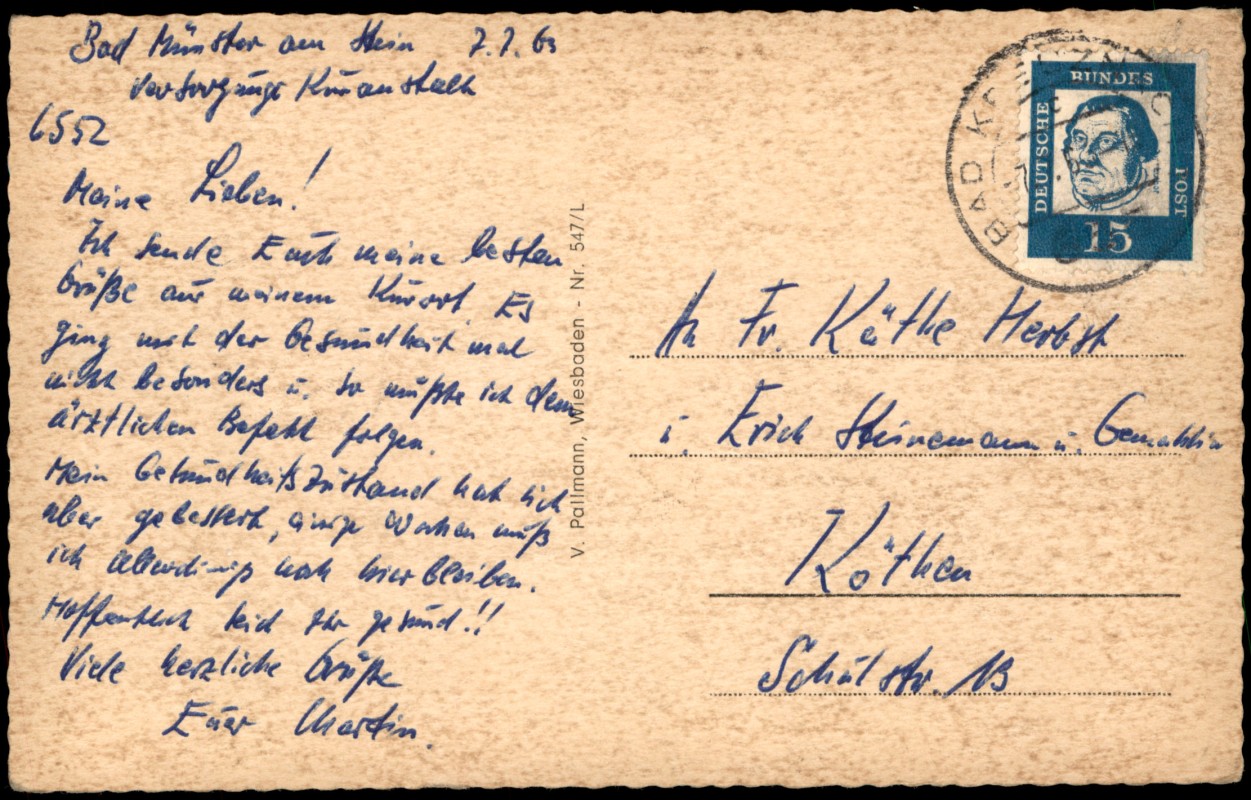 Bad Münster am Stein 7.7.63
Versorgungs Kuranstalt
6552
Meine Lieben!
Ich sende Euch meine besten
Grüße aus meinem Kurort. Es
ging mit der Gesundheit mal
nicht besonders u. so mußte ich dem
ärztlichen Befehl folgen.
Mein Gesundheitszustand hat sich
aber gebessert, einige Wochen muß
ich allerdings noch hier bleiben.
Hoffentlich seid Ihr gesund!!
Viele herzliche Grüße
Euer Martin.
V. Pallmann, Wiesbaden - Nr. 547/L
BAD KREUZNACH
DEUTSCHE
BUNDES
POST
15
An Fr. Käthe Herbst
u. Erich Steinemann u. Gemahlin
Köthen
Schulstr. 13